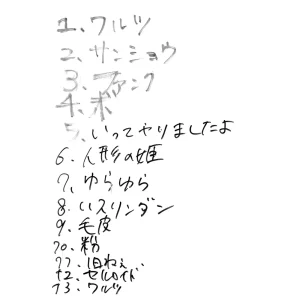 1、ワルツ
2、サンショウ
3、ファンク
4、ボ
5、いってやりましたよ
6、人形の姫
7、ゆらゆら
8、リスリンダン
9、毛皮
10、粉
11、旧ねぇ
12、セルロイド
13、ワルツ